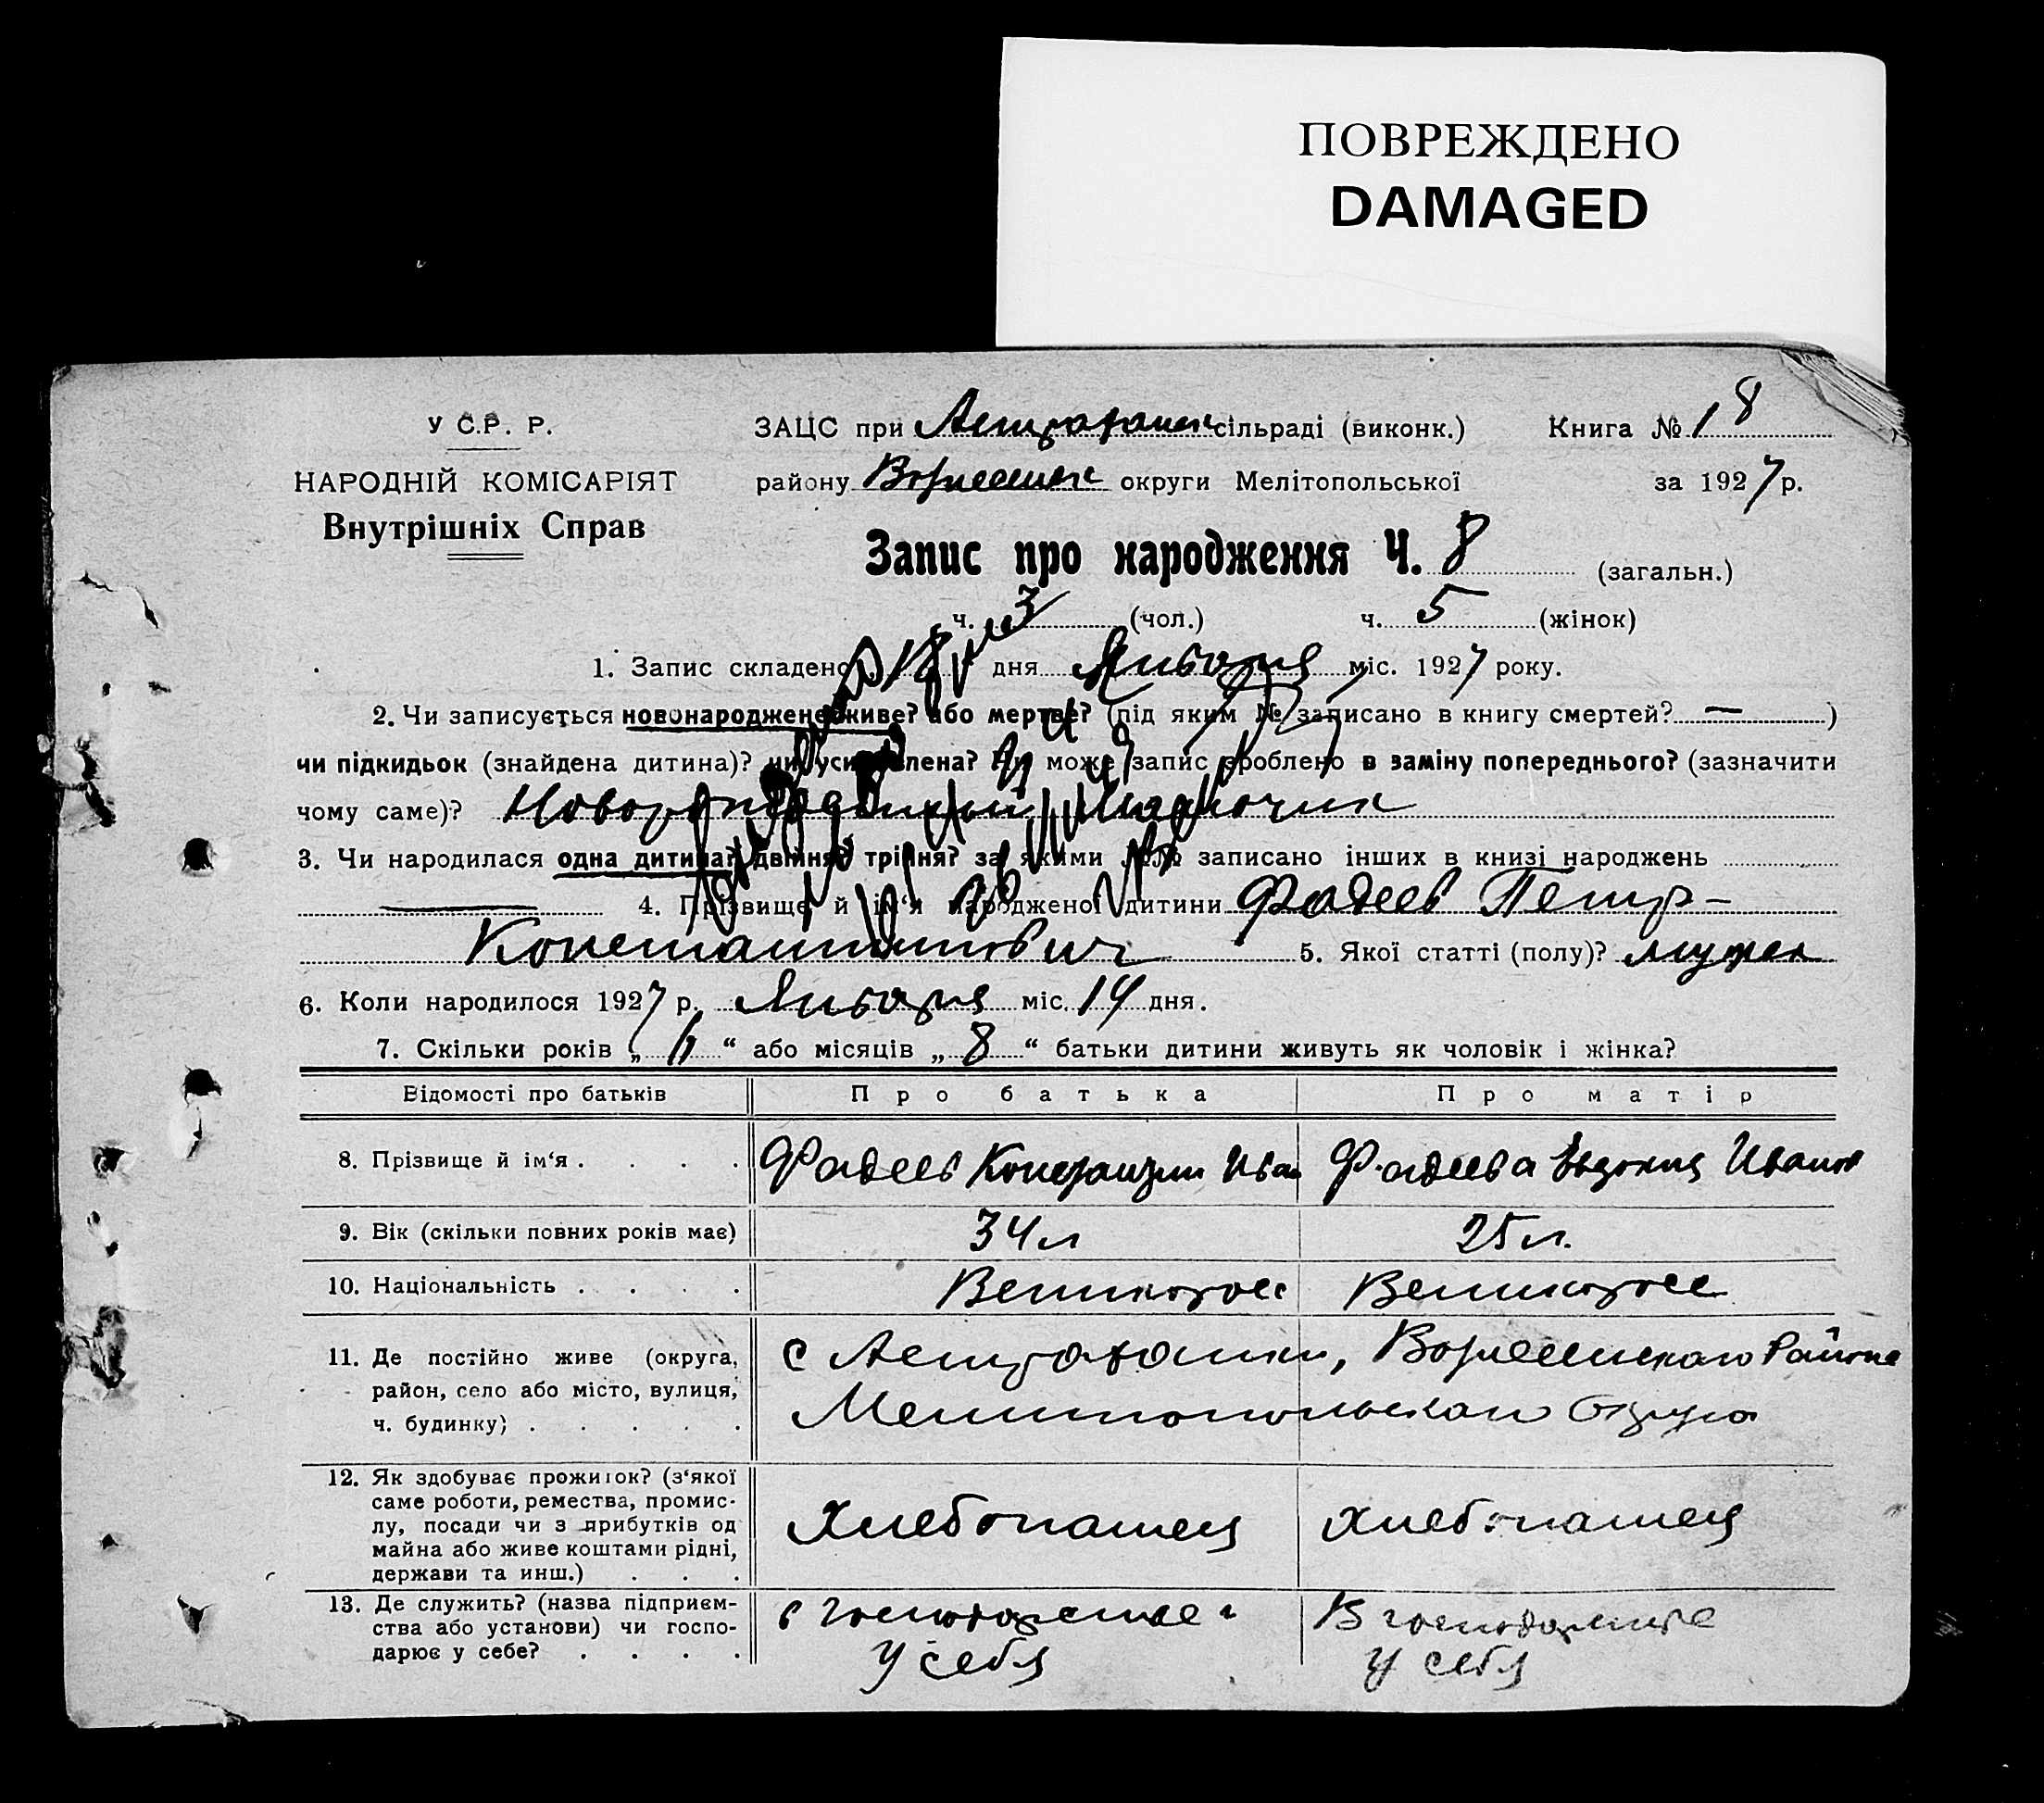 ПОВРЕЖДЕНО
DAMAGED
У С.Р. Р.
ЗАЦС при Астраханск сільраді (виконк.) Книга № 18
НАРОДНІЙ КОМІСАРІЯТ
району округи Мелітопольської за 1927 р.
Внутрішніх Справ
Запис про народження Ч. 8 (загальн.)
ч. 3 (чол.) ч. 5 (жінок)
1. Запис складено 18 дня Января міс. 1927 року.
2. Чи записується новонароджене живе? або мертве? (під яким № записано в книгу смертей? — )
чи підкидьок (знайдена дитина)? чи усиновлена? Чи може запис зроблено в заміну попереднього? (зазначити
чому саме)? Новорожденный Мальчик
3. Чи народилася одна дитина? двійня? трійня? за якими №№ записано інших в книзі народжень
— 4. Прізвище й ім‘я народженої дитини Фадеев Петр –
Константинович 5. Якої статті (полу)? мужск
6. Коли народилося 1927 р. Января міс. 14 дня.
7. Скільки років „ “ або місяців „ 8 “ батьки дитини живуть як чоловік і жінка?
Відомості про батьків Про батька Про матір
8. Прізвище й ім‘я . . . . Фадеев Константин Иван Фадеева Евдокия Иванов
9. Вік (скільки повних років має) 34 л 25 л.
10. Національність . . . . Великорос Великоросс
11. Де постійно живе (округа, район, село або місто, вулиця, ч. будинку) . . . . . с Астраханки, Района
Мелитопольского Округа
12. Як здобуває прожиток? (з‘якої саме роботи, ремества, промис-
лу, посади чи з прибутків од
майна або живе коштами рідні,
держави та инш.) . . . Хлебопашец Хлебопашец
13. Де служить? (назва підприєм-
ства або установи) чи госпо-
дарює у себе? . . . . у себя у себя